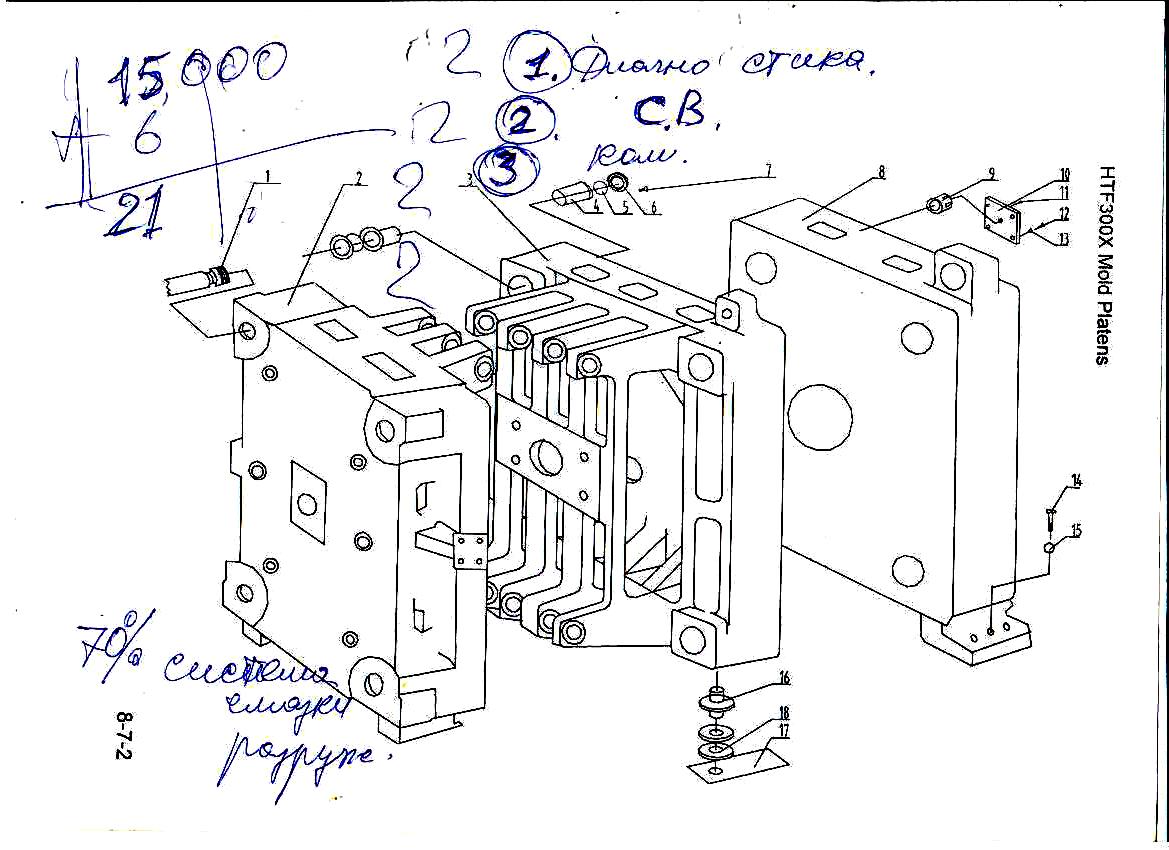 15,000
6
21
2 1. Диагностика.
2 2. С.В.
3
2
2
1
2
3
4
5
6
7
8
9
10
11
12
13
HTF300X Mold Platens
14
15
16
18
17
70%
система
смазки
8-7-2